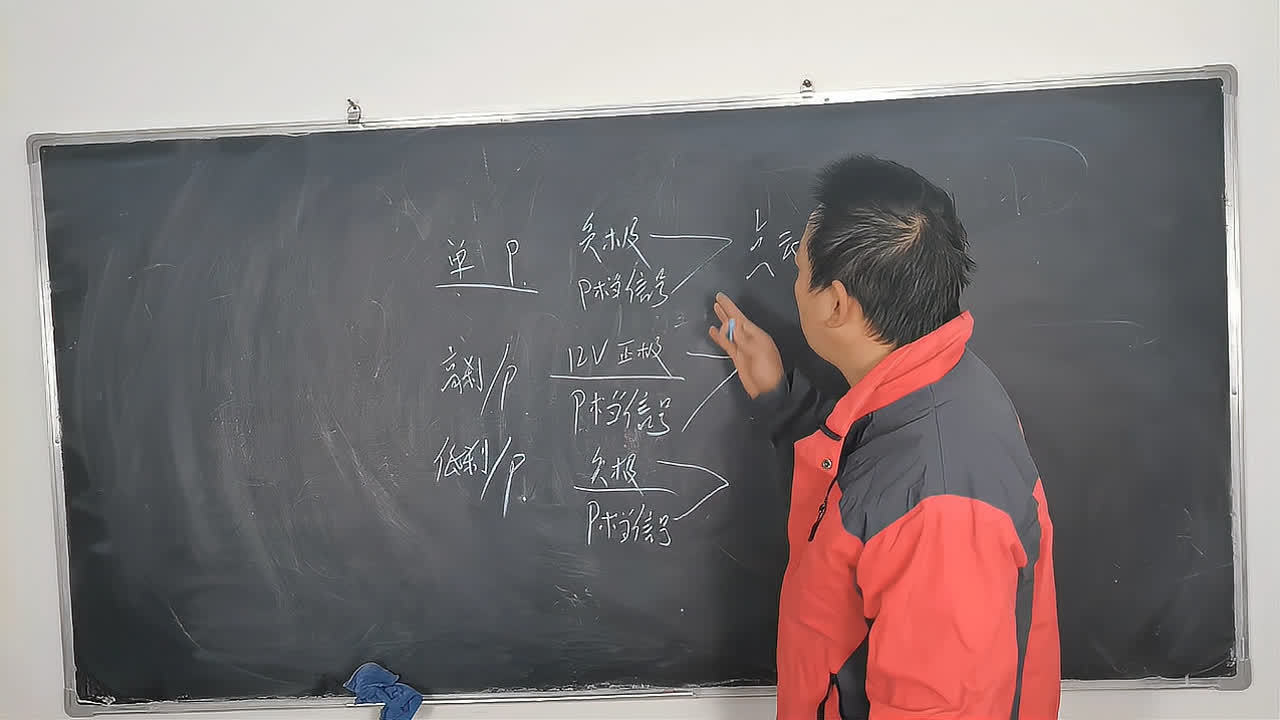 单 P. 负极
P档信号
高刹/P 12V正极
P档信号
低刹/P. 负极
P档信号